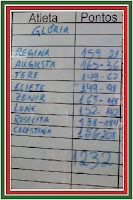 Atleta Pontos
GLÓRIA
REGINA 159-28
AUGUSTA 165-36
TERE 149-67
ELIETE 149-98
ZENIR 167-
LONE 152-
ROSELITA 138-184
CELESTINA 156
1232